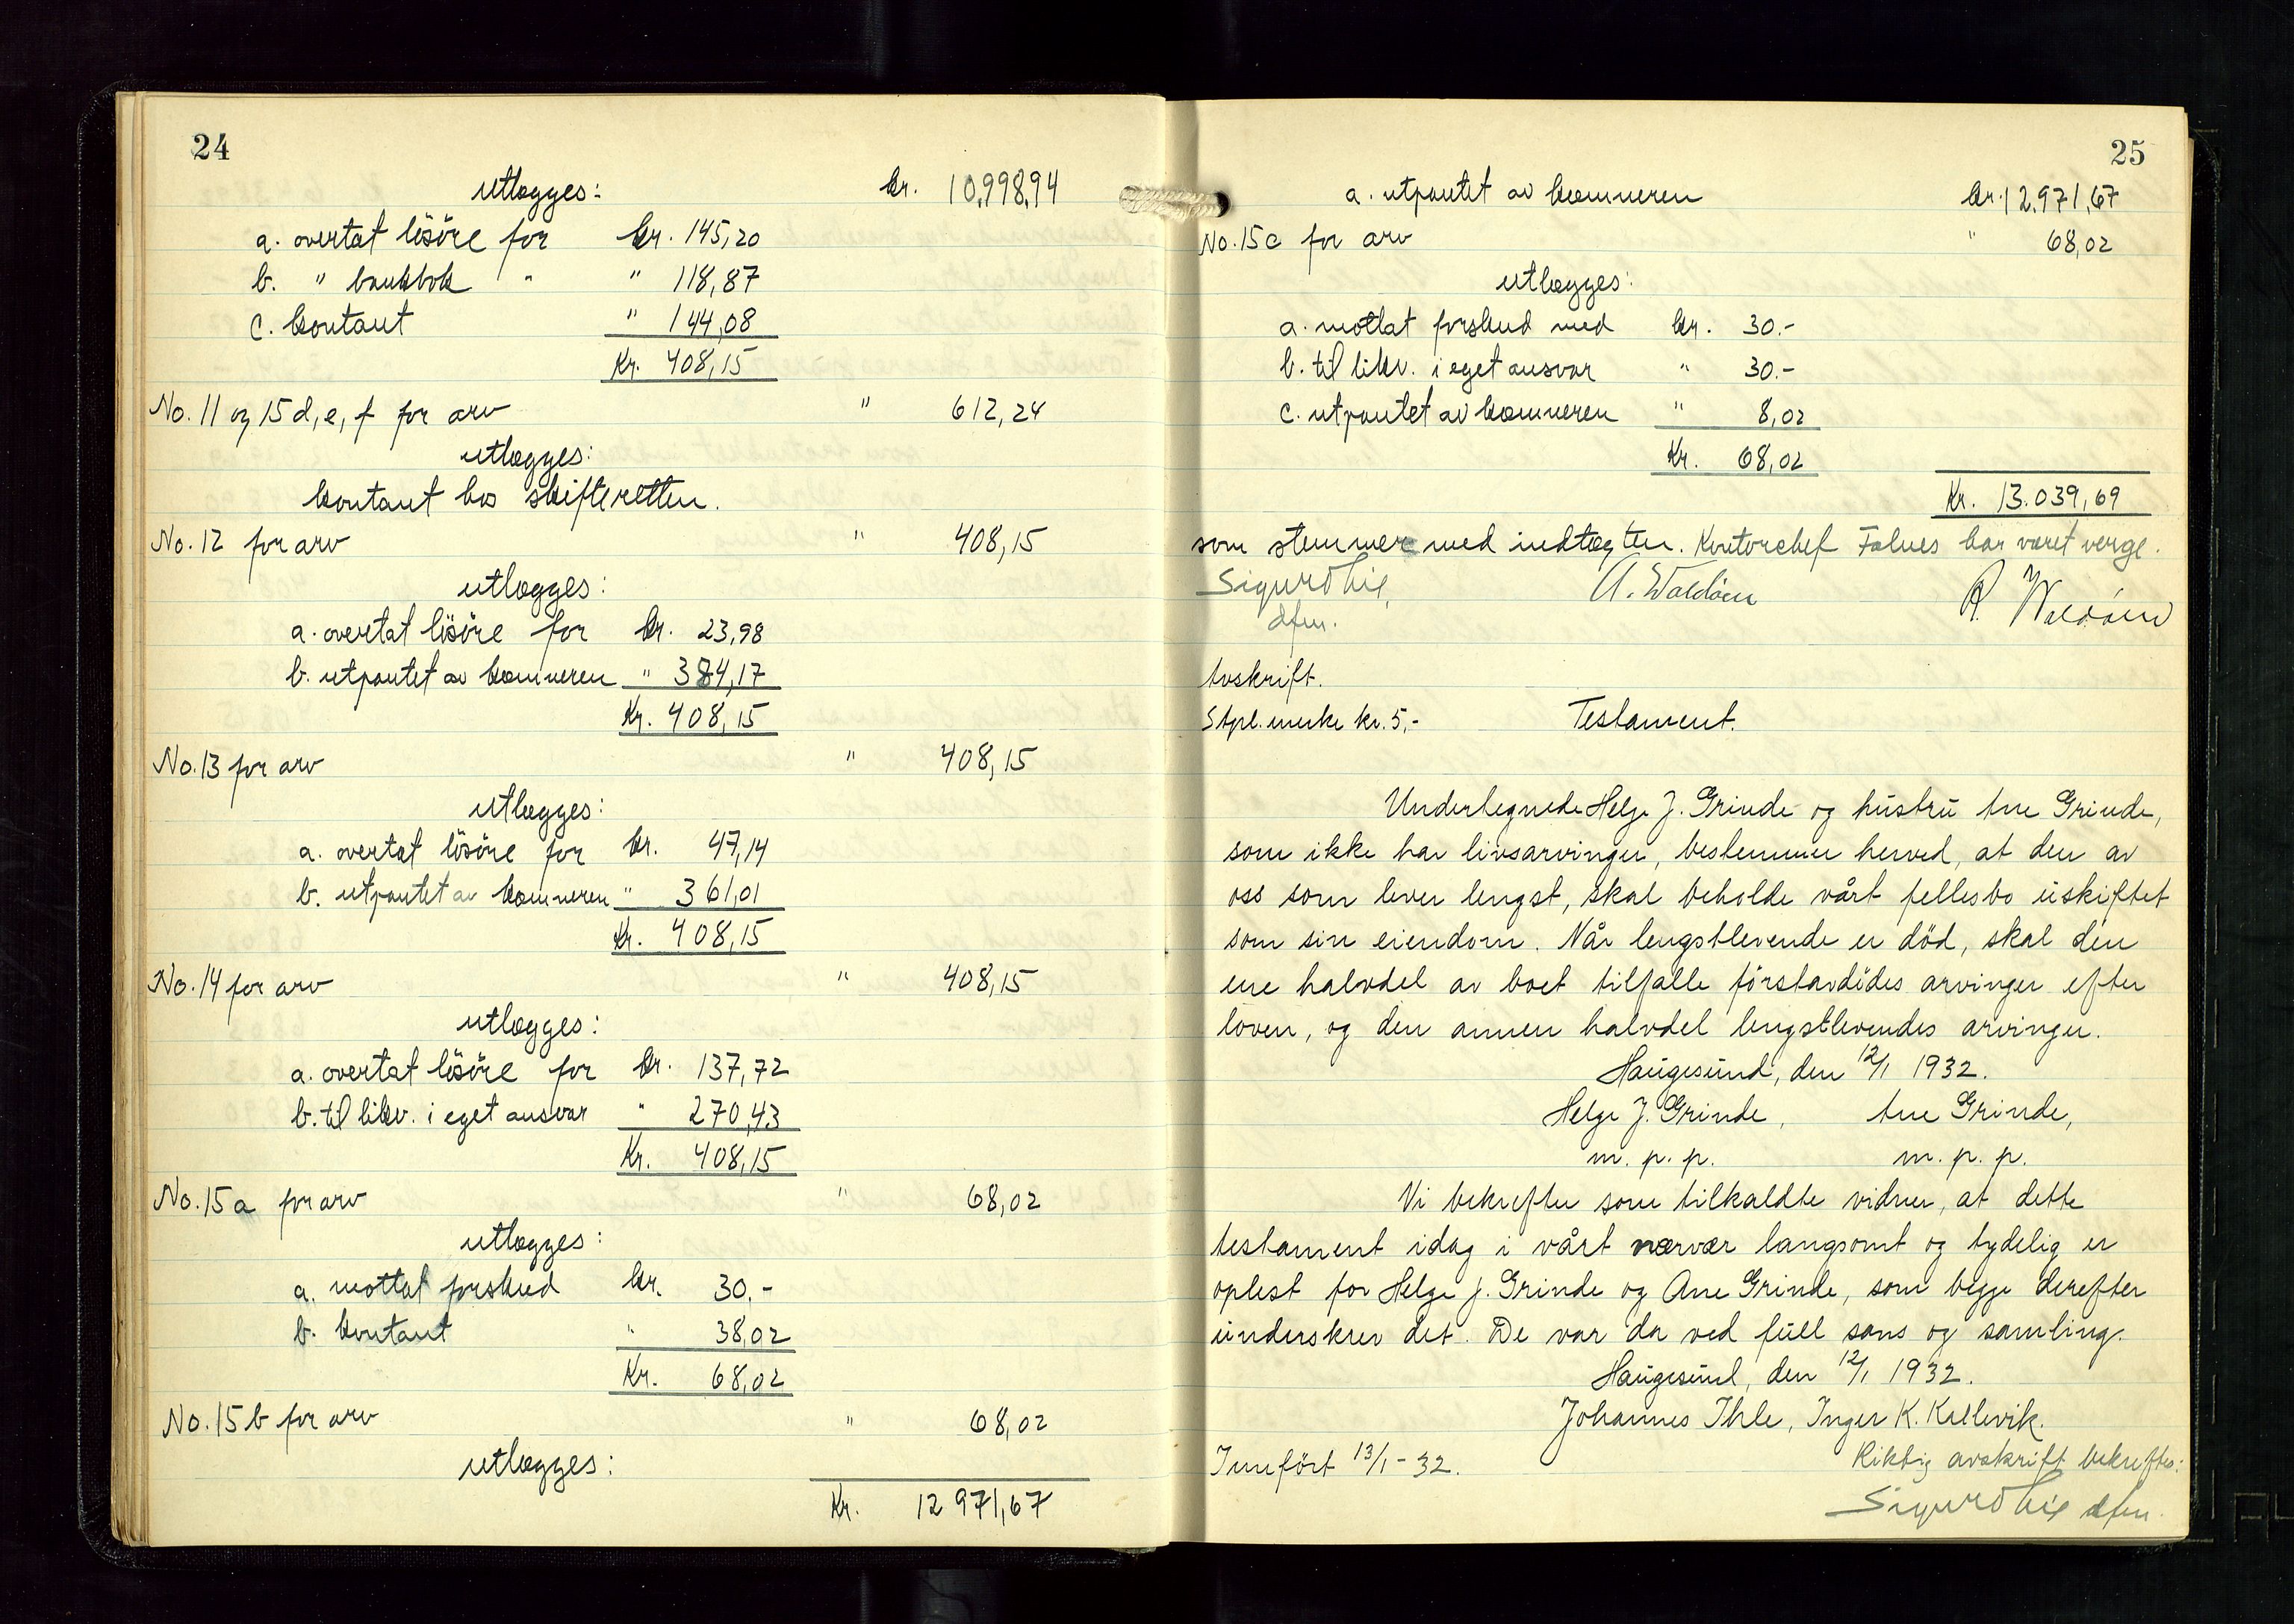 24
utlægges: kr. 10.998,94
a. overtat lösöre for kr. 145,20
b. " bankbok " " 118,87
c. kontant " 144,08
Kr. 408,15
No. 11 og 15 d, e, f for arv " 612,24
utlægges:
kontant hos skifteretten.
No. 12 for arv " 408,15
utlægges:
a. overtat lösöre for kr. 23,98
b. utpantet av kæmneren " 384,17
Kr. 408,15
No. 13 for arv " 408,15
utlægges:
a. overtat lösöre for kr. 47,14
b. utpantet av kæmneren " 361,01
Kr. 408,15
No. 14 for arv " 408,15
utlægges:
a. overtat lösöre for kr. 137,72
b. til likv. i eget ansvar " 270,43
Kr. 408,15
No. 15 a for arv " 68,02
utlægges:
a. mottat forskud kr. 30.-
b. kontant " 38,02
Kr. 68,02
No. 15 b for arv " 68,02
utlægges:
Kr. 12 971,67
25
a. utpantet av kæmneren kr. 12.971,67
No. 15 c for arv " 68,02
utlægges:
a. mottat forskud med kr. 30.-
b. til likv. i eget ansvar " 30.-
c. utpantet av kæmneren " 8,02
Kr. 68,02
Kr. 13.039,69
som stemmer med indtægten. Kontorchef Falnes har været verge.
Sigurd
dfm.
Avskrift.
Stpl. merke kr. 5,- Testament.
Undertegnede Helge J. Grinde og hustru Ane Grinde,
som ikke har livsarvinger, bestemmer herved, at den av
oss som lever lengst, skal beholde vårt fellesbo uskiftet
som sin eiendom. Når lengstlevende er död, skal den
ene halvdel av boet tilfalle förstavdödes arvinger efter
loven, og den annen halvdel lengstlevendes arvinger.
Haugesund, den 12/1 1932.
Helge J. Grinde, Ane Grinde,
m. p. p. m. p. p.
Vi bekrefter som tilkaldte vidner, at dette
testament idag i vårt nærvær langsomt og tydelig er
oplest for Helge J. Grinde og Ane Grinde, som begge derefter
underskrev det. De var da ved full sans og samling.
Haugesund, den 12/1 1932.
Johannes Ihle, Inger K. Kallevik.
Innfört 13/1-32. Riktig avskrift bekreftes:
Sigurd dfm.